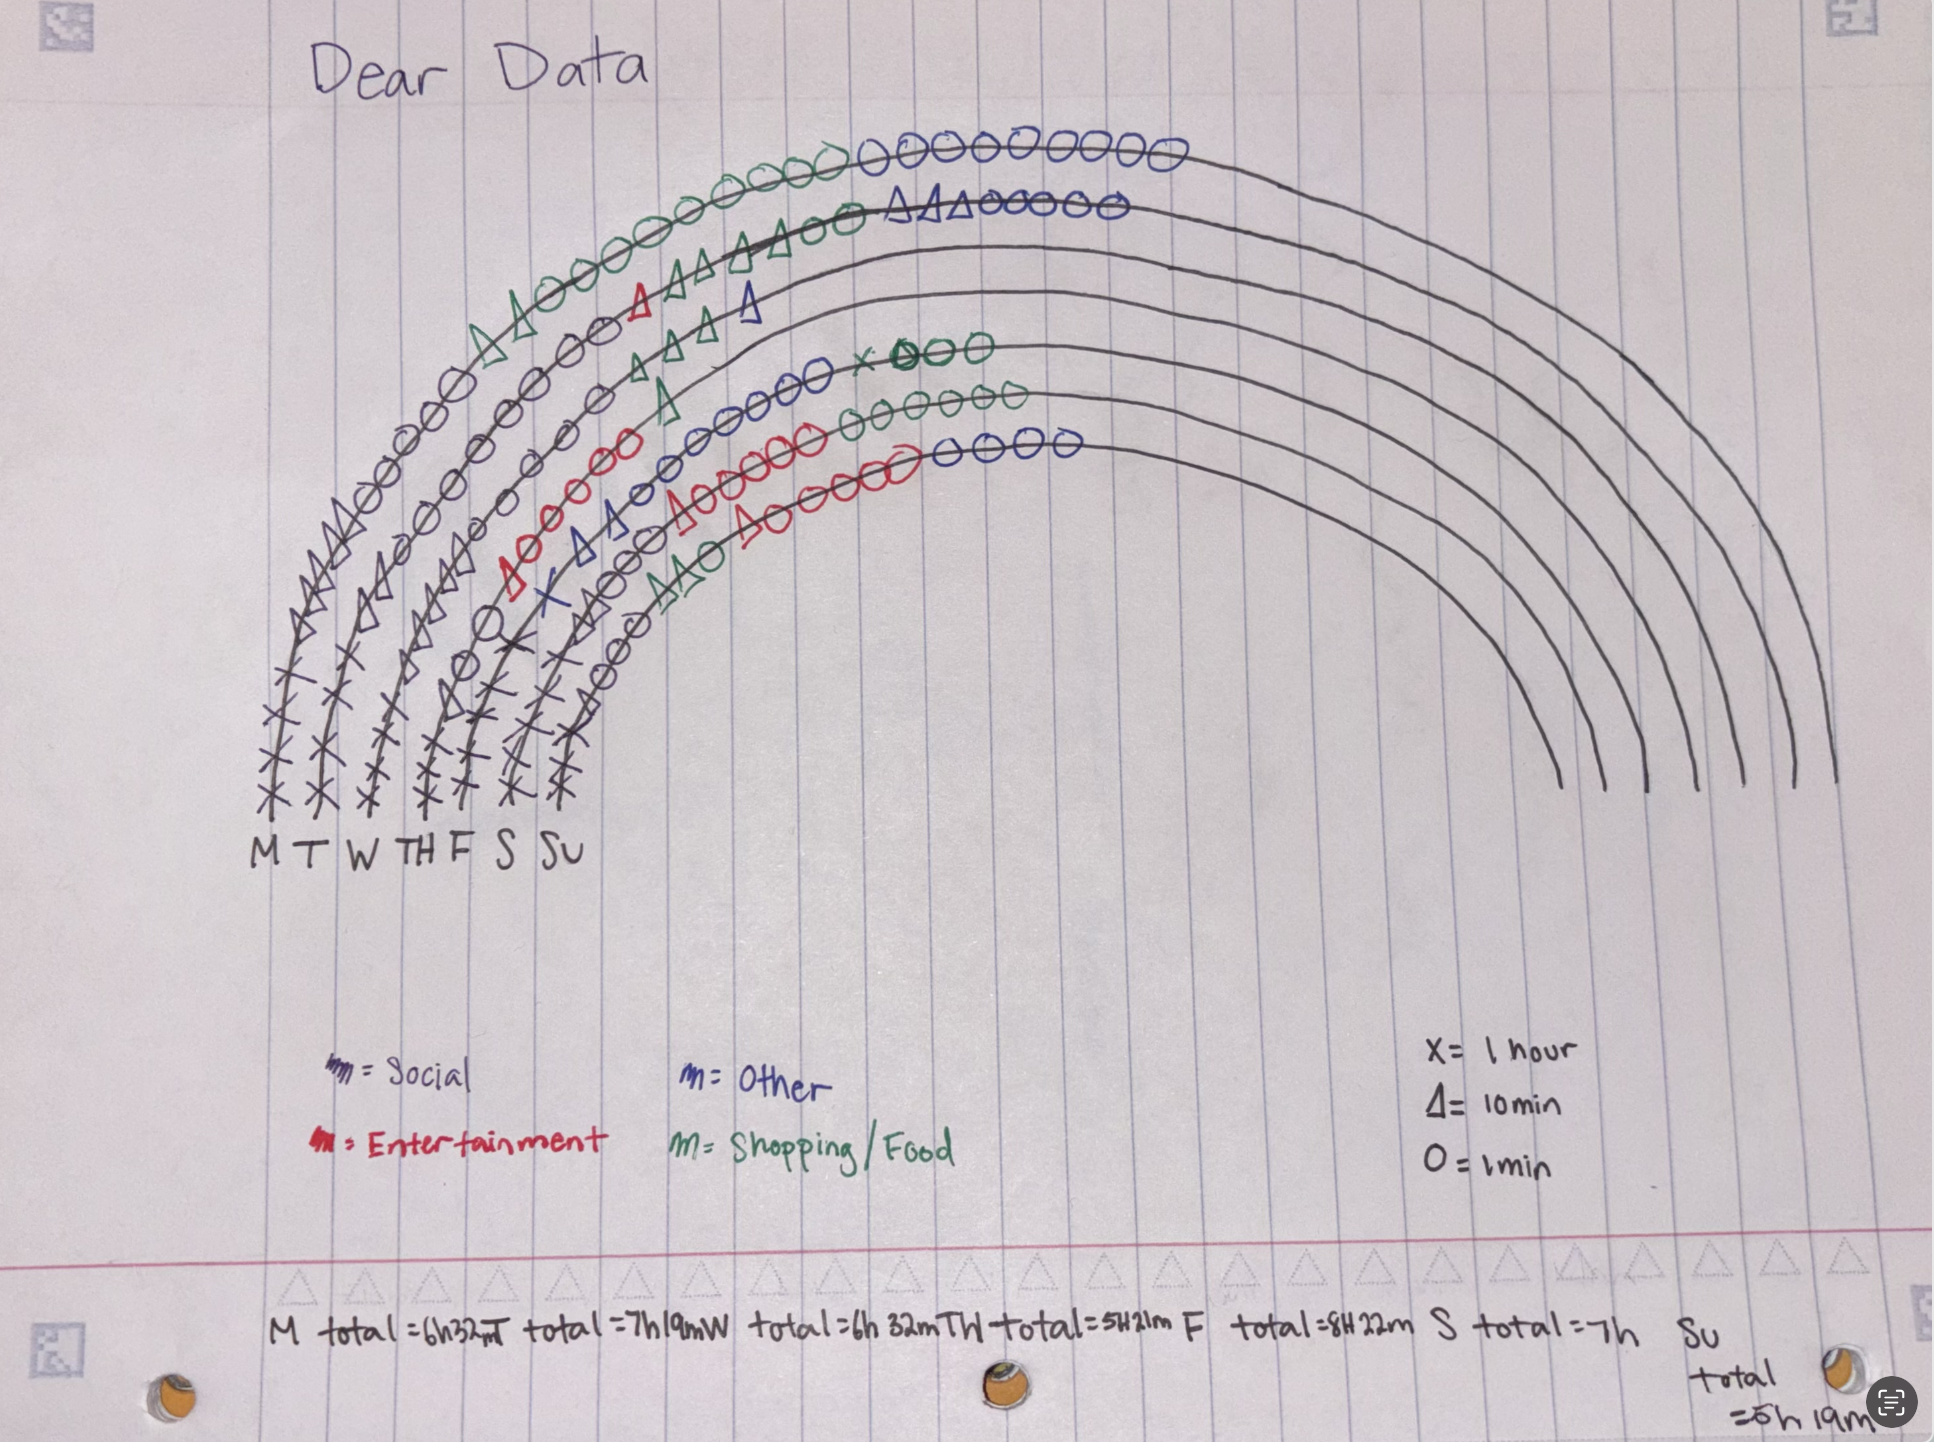 Dear Data
M T W TH F S Su
= Social
= Other
= Entertainment
= Shopping/Food
X = 1 hour
Δ = 10min
O = 1min
M total = 6h32m T total = 7h19m W total = 6h 32m TH total = 5H21m F total = 8H 22m S total = 7h Su
total
= 5h 19m